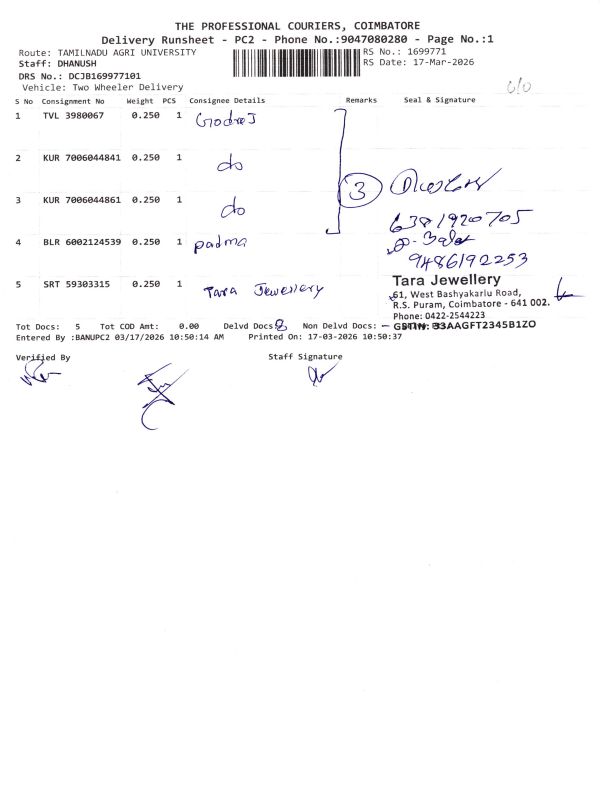 THE PROFESSIONAL COURIERS, COIMBATORE
Delivery Runsheet - PC2 - Phone No.:9047080280 - Page No.:1
Route: TAMILNADU AGRI UNIVERSITY RS No.: 1699771
Staff: DHANUSH RS Date: 17-Mar-2026
DRS No.: DCJB169977101
Vehicle: Two Wheeler Delivery
S No Consignment No Weight PCS Consignee Details Remarks Seal & Signature
1 TVL 3980067 0.250 1 Godrej
2 KUR 7006044841 0.250 1 do
3
3 KUR 7006044861 0.250 1 do
6381920705
4 BLR 6002124539 0.250 1 padma
9486192253
5 SRT 59303315 0.250 1 Tara Jewellery
Tara Jewellery
61, West Bashyakarlu Road,
R.S. Puram, Coimbatore - 641 002.
Phone: 0422-2544223
GSTIN: 33AAGFT2345B1ZO
Tot Docs: 5 Tot COD Amt: 0.00 Delvd Docs: Non Delvd Docs: -
Entered By :BANUPC2 03/17/2026 10:50:14 AM Printed On: 17-03-2026 10:50:37
Verified By Staff Signature